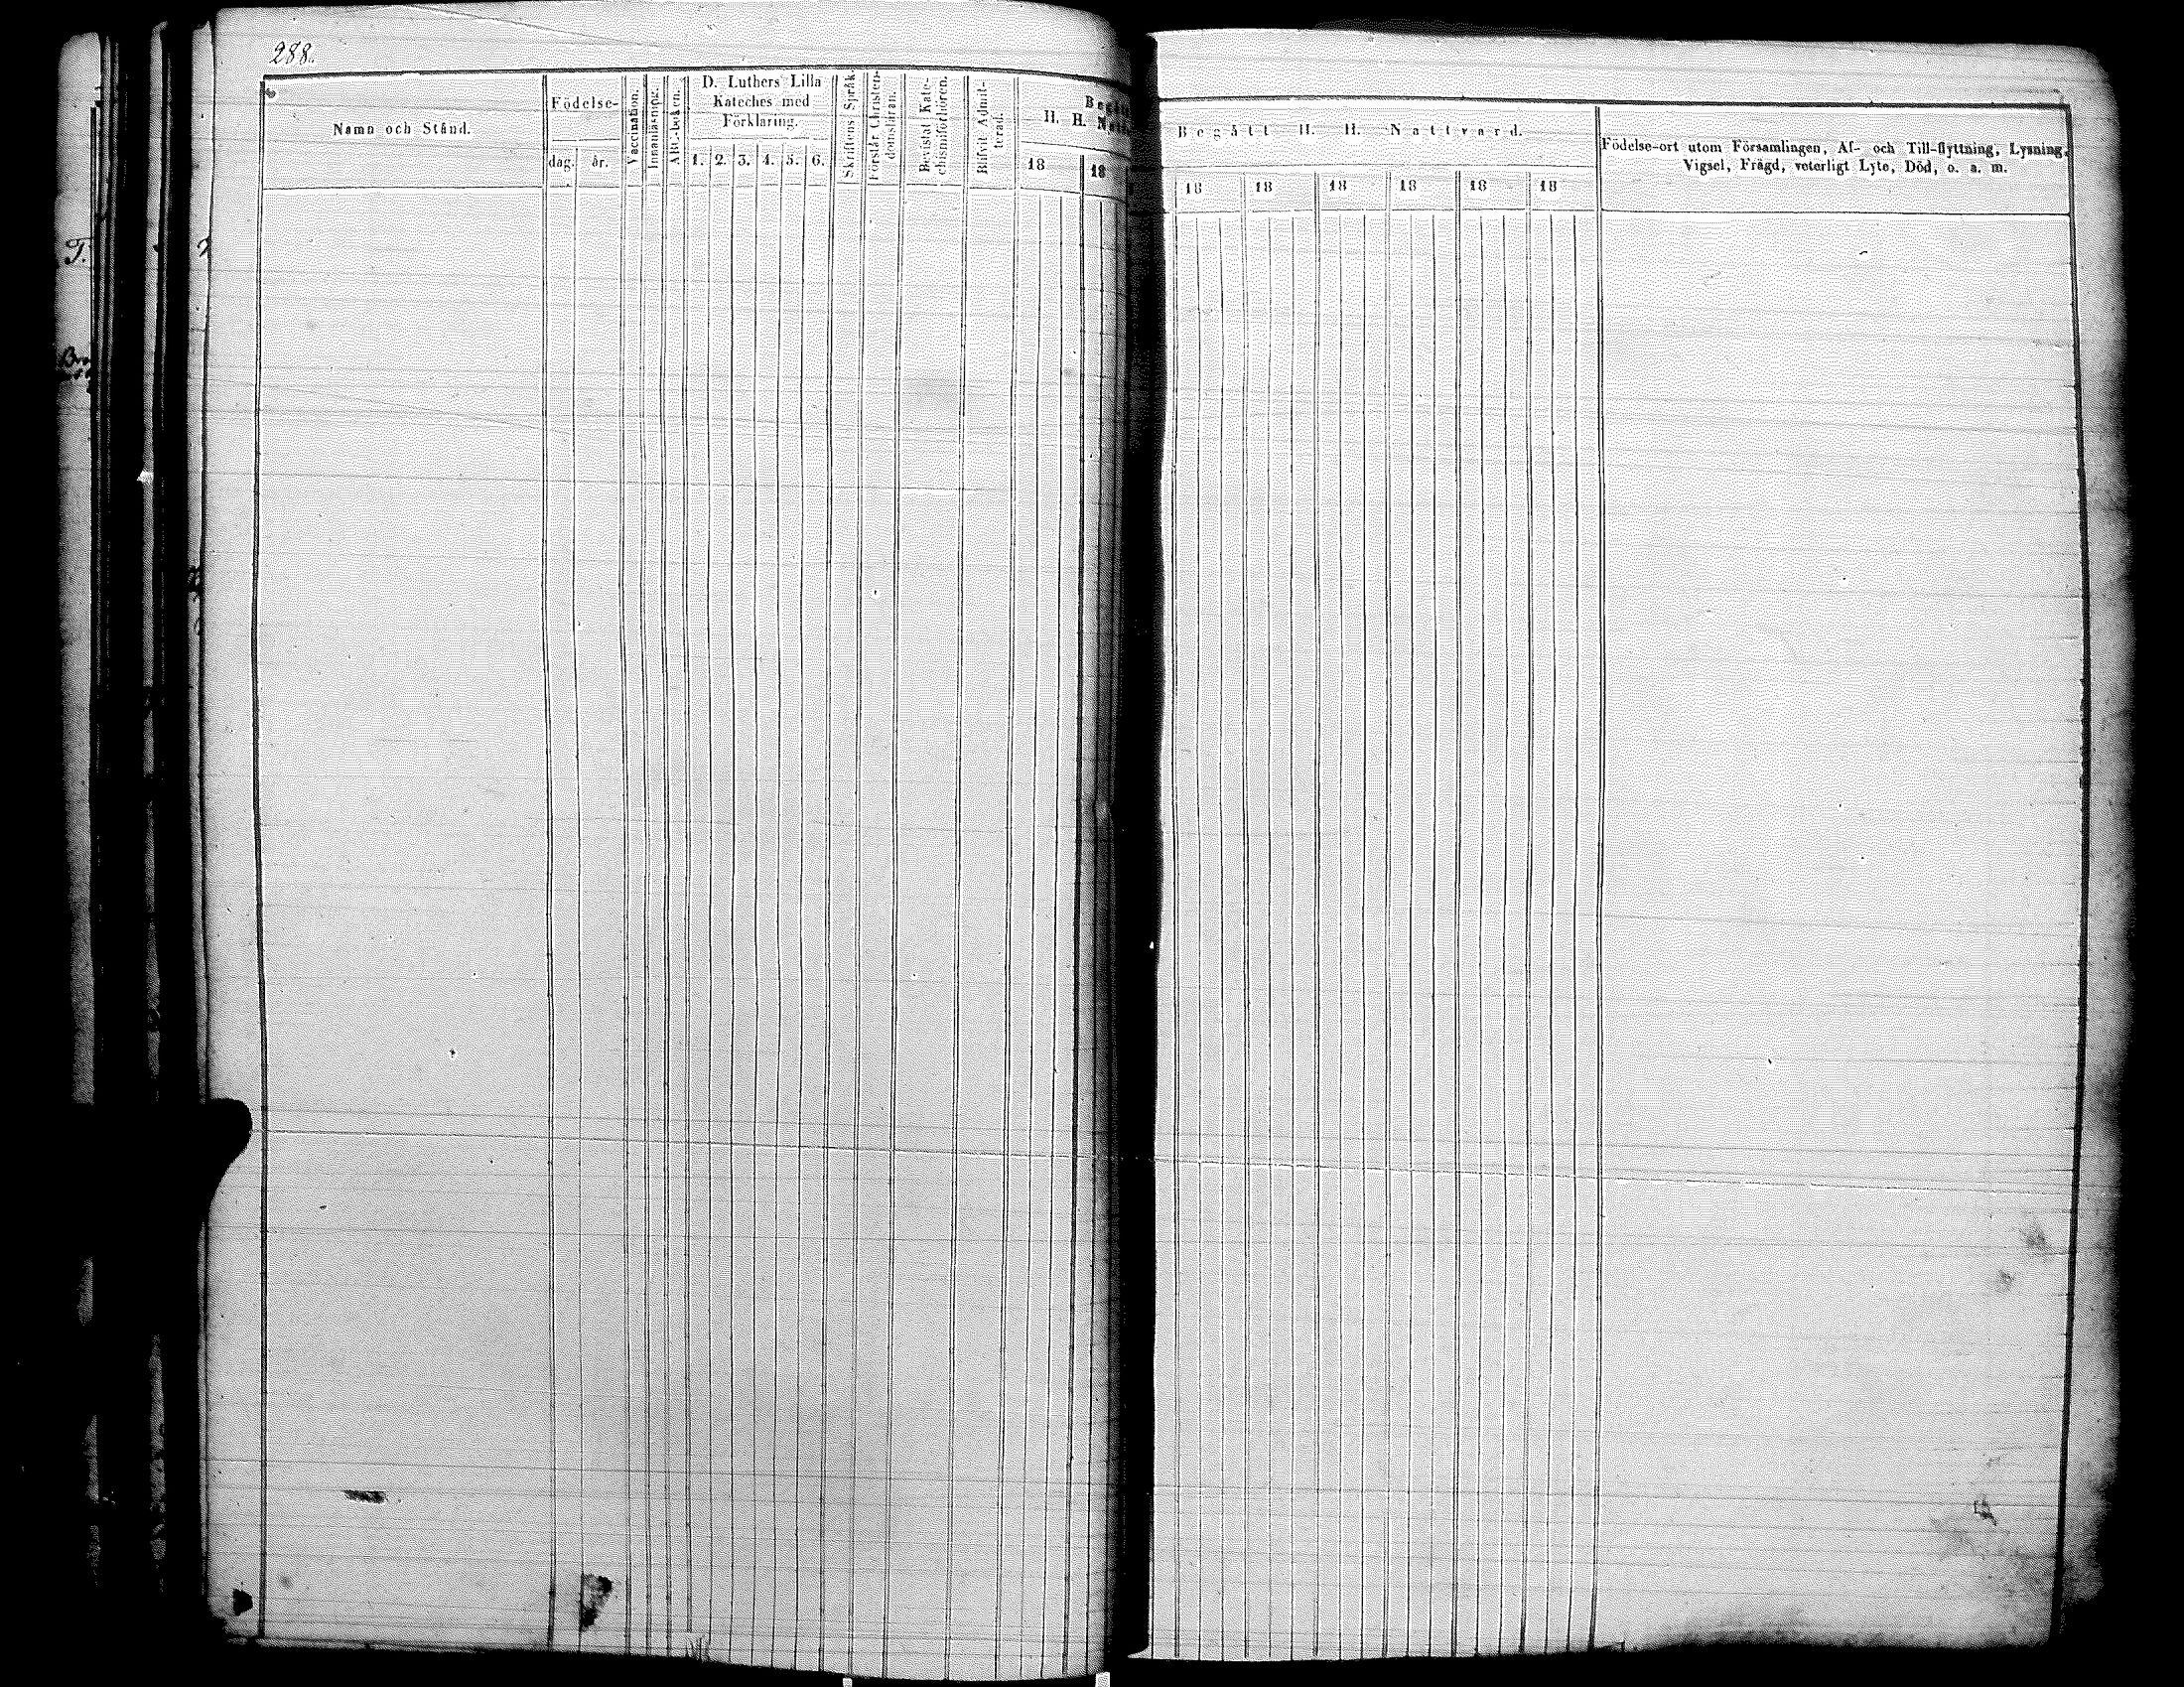 288.
Namn och Stånd.
Födelse-
dag.
år.
Vaccination.
Innanläsning.
Abc-boken.
D. Luthers Lilla
Kateches med
Förklaring.
1. 2. 3. 4. 5. 6.
Skriftens Språk.
Förstår Christen-
domsläran.
Bevistat Kate-
chismiförhören.
Blifvit Admit-
terad.
H. H.
18
18
Begått H. H. Nattvard.
18 18 18 18 18 18
Födelse-ort utom Församlingen, Af- och Till-flyttning, Lysning,
Vigsel, Frägd, veterligt Lyte, Död, o. s. m.